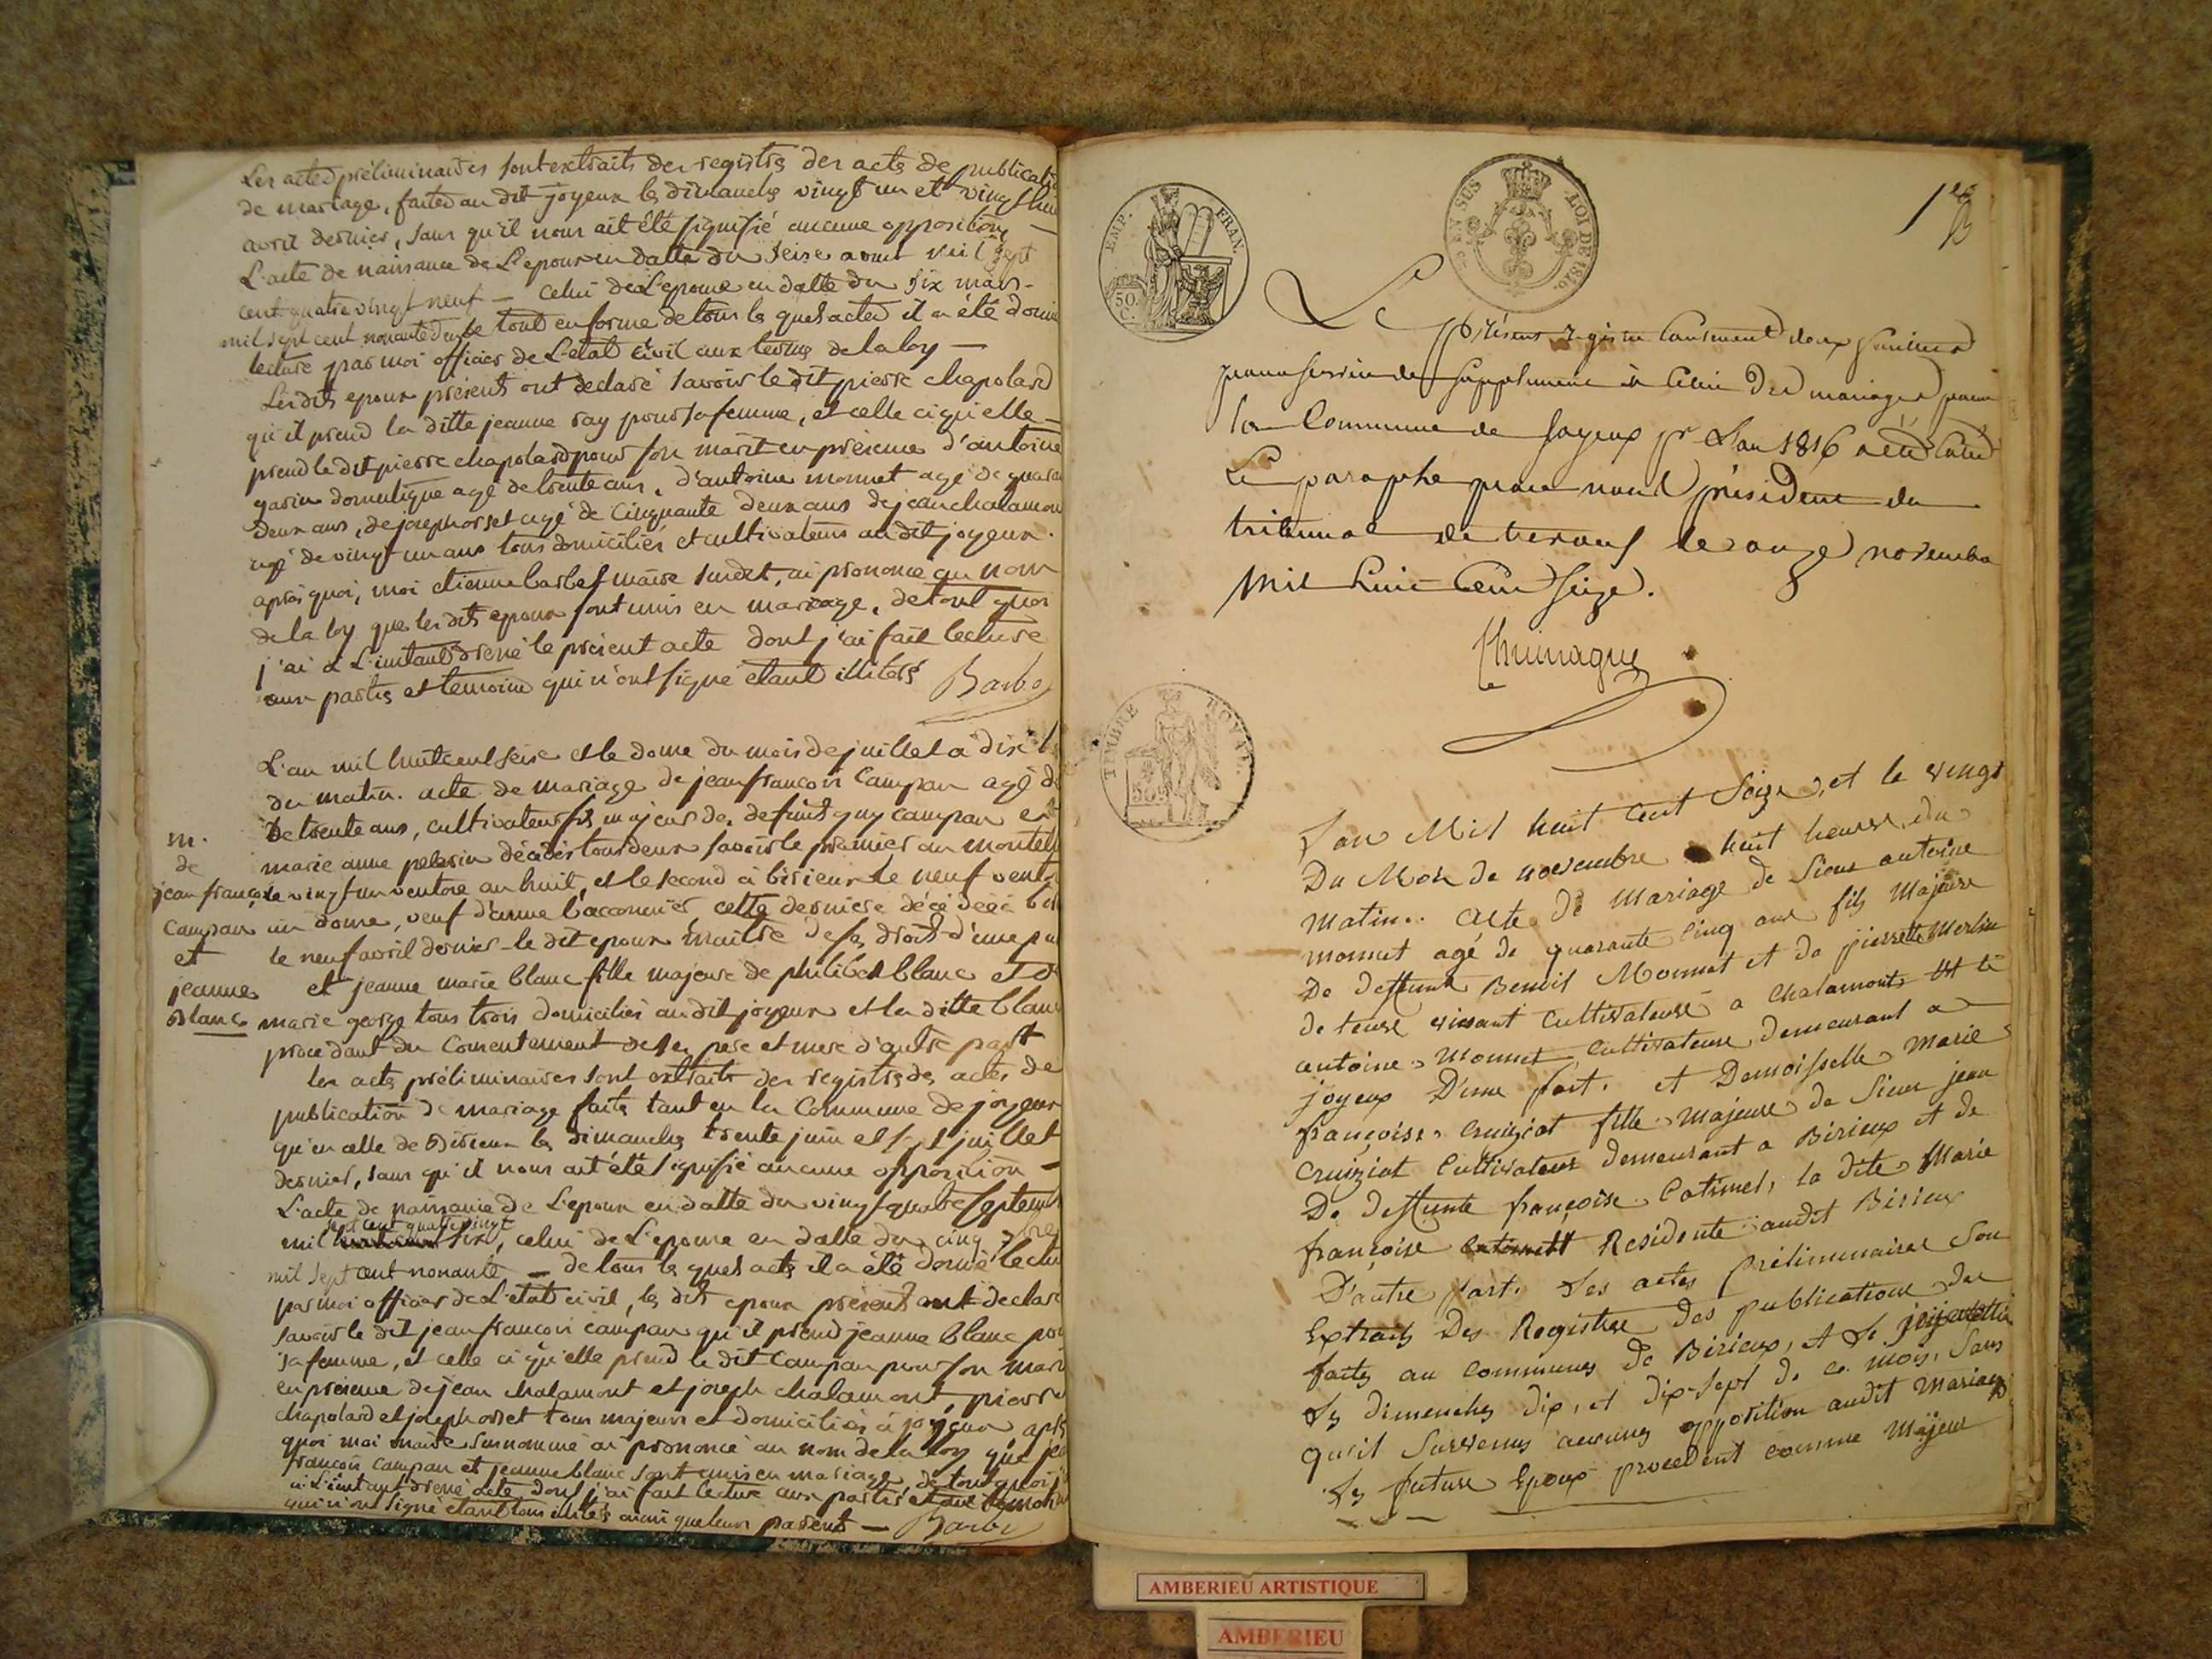 Les actes préliminaires sont extraits des registres des actes de publicati
de mariage, faites au dit joyeux les dimanches vingt un et vingt hui
avril dernier, sans qu'il nous ait été signifié aucune opposition
L'acte de naissance de L'epoux en datte du seise aoust mil sept
cent quatre vingt neuf — celui de L'epouse en datte du six mars
mil sept cent nonante tout en forme de tous les quels actes il a été donné
lecture par moi officier de L'etat civil aux termes de la loy —
Les dits epoux présents ont declaré savoir le dit pierre chapolard
qu'il prend la ditte jeanne ray pour sa femme, et celle ci qu'elle
prend le dit pierre chapolard pour son marit en présence d'antoine
garin domestique agé de trente ans, d'antoine monnet agé de quaran
deux ans, de joseph orset agé de Cinquante deux ans de jean chalamon
agé de vingt un ans tous domiciliés et cultivateurs au dit joyeux.
après quoi, moi etienne barbet maire susdit, ai prononcé au nom
de la loy que les dits epoux sont unis en mariage, de tout quoi
j'ai à L'instant dressé le présent acte dont j'ai fait lecture
aux parties et temoins qui n'ont signé etant illiterés Barbe
L'an mil huit cent seise et le douse du mois de juillet à dix h
du matin. acte de mariage de jean françois Campan agé d
de trente ans, cultivateur fils majeur de defunt guy campan et
marie anne pelerin décédés tous deux savoir le premier au montel
le vingt un ventose an huit, et le second à birieux le neuf vent
an douse, veuf d'anne cette derniere décédée à bir
le neuf avril dernier le dit epoux maitre de ses droits d'une pa
et jeanne marie blanc fille majeure de philibert blanc et d
marie george tous trois domiciliés au dit joyeux et la ditte blanc
procedant du Consentement de ses pere et mere d'autre part
m.
de
jean françois
Campan
et
jeanne
Blanc
les actes préliminaires sont extraits des registres des actes de
publication de mariage faits tant en la Commune de joyeux
qu'en celle de Birieux les dimanches trente juin et sept juillet
dernier, sans qu'il nous ait été signifié aucune opposition —
L'acte de naissance de L'epoux en datte du vingt quatre septemb
sept cent quatre vingt
mil six, celui de L'epouse en datte du cinq
mil sept cent nonante — de tous les quels actes il a été donné lectu
par moi officier de L'etat civil, les dits epoux présents ont declaré
savoir le dit jean francois campan qu'il prend jeanne blanc pou
sa femme, et celle ci qu'elle prend le dit Campan pour son mari
en présence de jean chalamont et joseph chalamont, pierre
chapolard et joseph orset tous majeurs et domiciliés à joyeux aprè
quoi moi maire susnommé ai prononcé au nom de la loy que jea
francois campan et jeanne blanc sont unis en mariage de tout quoi j
ai à L'instant dressé acte dont j'ai fait lecture aux parties et aux temoins
qui n'ont signé etant tous illiterés ainsi que leurs parents — Barbe
EMP. FRAN.
50. C.
EN SUS LOI DE 1816
1er
Le présent registre Contenant deux feuilles
pour servir de supplement à Celui Des mariages pour
la Commune de Joyeux pr L'an 1816 a été Coté
Et paraphé par nous président du
tribunal de trevoux le onze novembre
Mil huit Cent Seize.
TIMBRE ROYAL
L'an Mil huit Cent Seize, et le vingt
Du Mois de novembre huit heures du
matin. Acte de Mariage de Sieur antoine
monnet agé de quarante Cinq ans fils Majeure
De deffunt Benoit Monnet et de pierrette Merlin
de leurs vivant Cultivateurs a Chalamont Ut le
antoine Monnet, cultivateur demeurant a
joyeux D'une part. et Demoisselle Marie
françoise Cruiziat fille Majeure de Sieur jean
Cruiziat Cultivateur demeurant a Birieux et de
De deffunte françoise Catimel, la dite Marie
françoise Residente audit Birieux
D'autre part. Les actes préliminaires son
Extraits Des Registres Des publications des
faites au communes De Birieux, et de
Les dimenches dix, et dix-sept de ce mois, Sans
qu'il Survenus aucunes opposition audit Mariage
Les future Epoux procedent comme Majeur
AMBERIEU ARTISTIQUE
AMBERIEU